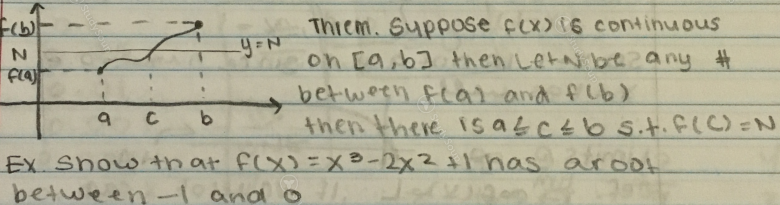 f(b)
N
f(a)
y=N
a c b
Threm. Suppose f(x) is continuous
on [a,b] then Let N be any #
between f(a) and f(b)
then there is a ≤ c ≤ b s.t. f(c)=N
EX. Show that f(x)=x³-2x²+1 has a root
between -1 and 0